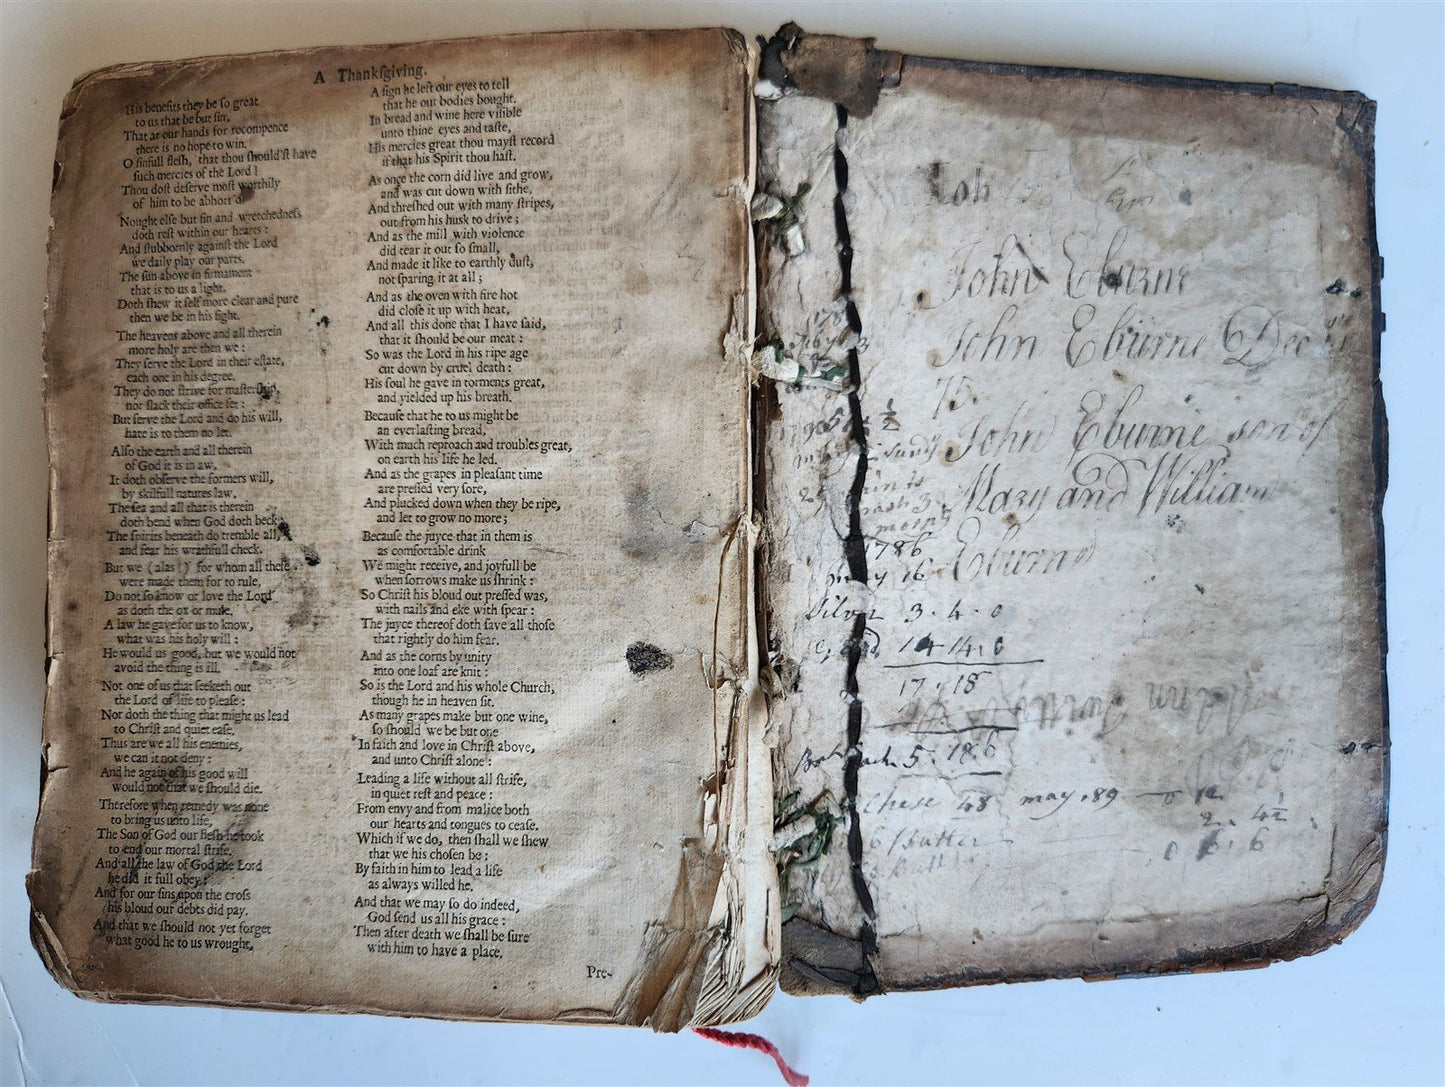 A Thankſgiving.
His benefits they be ſo great
to us that be but ſin,
That at our hands for recompence
there is no hope to win.
O ſinfull fleſh, that thou ſhould'ſt have
ſuch mercies of the Lord!
Thou doſt deſerve moſt worthily
of him to be abhorr'd.
Nought elſe but ſin and wretchedneſs
doth reſt within our hearts:
And ſtubbornly againſt the Lord
we daily play our parts.
The ſun above in firmament
that is to us a light,
Doth ſhew it ſelf more clear and pure
then we be in his ſight.
The heavens above and all therein
more holy are then we:
They ſerve the Lord in their eſtate,
each one in his degree.
They do not ſtrive for maſterſhip,
nor ſlack their office ſet:
But ſerve the Lord and do his will,
hate is to them no let.
Alſo the earth and all therein
of God it is in aw,
It doth obſerve the formers will,
by skilfull natures law.
The ſea and all that is therein
doth bend when God doth beck;
The ſpirits beneath do tremble all,
and fear his wrathfull check.
But we (alas!) for whom all theſe
were made them for to rule,
Do not ſo know or love the Lord
as doth the ox or mule.
A law he gave for us to know,
what was his holy will:
He would us good, but we would not
avoid the thing is ill.
Not one of us that ſeeketh out
the Lord of life to pleaſe:
Nor doth the thing that might us lead
to Chriſt and quiet eaſe.
Thus are we all his enemies,
we can it not deny:
And he again of his good will
would not that we ſhould die.
Therefore when remedy was none
to bring us unto life,
The Son of God our fleſh he took
to end our mortal ſtrife.
And all the law of God the Lord
he did it full obey:
And for our ſins upon the croſs
his bloud our debts did pay.
And that we ſhould not yet forget
what good he to us wrought,
A ſign he left our eyes to tell
that he our bodies bought.
In bread and wine here viſible
unto thine eyes and taſte,
His mercies great thou mayſt record
if that his Spirit thou haſt.
As once the corn did live and grow,
and was cut down with ſithe,
And threſhed out with many ſtripes,
out from his husk to drive;
And as the mill with violence
did tear it out ſo ſmall,
And made it like to earthly duſt,
not ſparing it at all;
And as the oven with fire hot
did cloſe it up with heat,
And all this done that I have ſaid,
that it ſhould be our meat:
So was the Lord in his ripe age
cut down by cruel death:
His ſoul he gave in torments great,
and yielded up his breath.
Becauſe that he to us might be
an everlaſting bread,
With much reproach and troubles great,
on earth his life he led.
And as the grapes in pleaſant time
are preſſed very ſore,
And plucked down when they be ripe,
and let to grow no more;
Becauſe the juyce that in them is
as comfortable drink
We might receive, and joyfull be
when ſorrows make us ſhrink:
So Chriſt his bloud out preſſed was,
with nails and eke with ſpear:
The juyce thereof doth ſave all thoſe
that rightly do him fear.
And as the corns by unity
into one loaf are knit:
So is the Lord and his whole Church,
though he in heaven ſit.
As many grapes make but one wine,
ſo ſhould we be but one
In faith and love in Chriſt above,
and unto Chriſt alone:
Leading a life without all ſtrife,
in quiet reſt and peace:
From envy and from malice both
our hearts and tongues to ceaſe.
Which if we do, then ſhall we ſhew
that we his choſen be:
By faith in him to lead a life
as always willed he.
And that we may ſo do indeed,
God ſend us all his grace:
Then after death we ſhall be ſure
with him to have a place.
Pre-
John Eburne
John Eburne Dec
75
John Eburne son of
Mary and William
Eburne
1786
may 16
Silver 3.4.0
14 14.6
17 18
5.18.6
Chese 48 may .89
2.. 4½
6/Butter
6.6